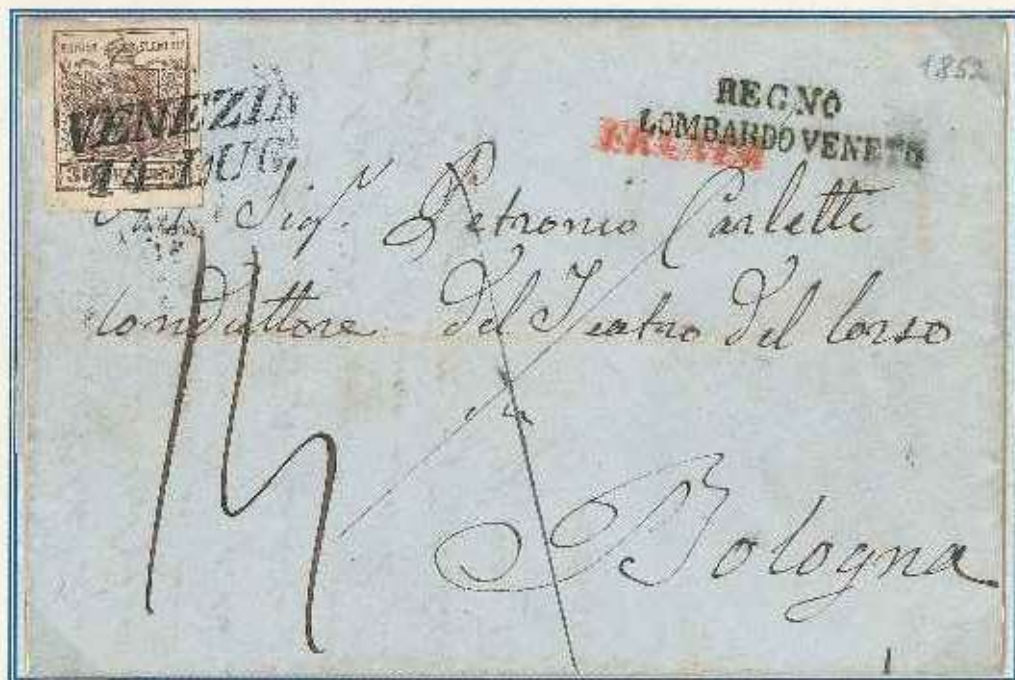 1852
VENEZIA
14 LUG
REGNO
LOMBARDO VENETO
Sigr. Petronio Carletti
Conduttore del Teatro del Corso
Bologna